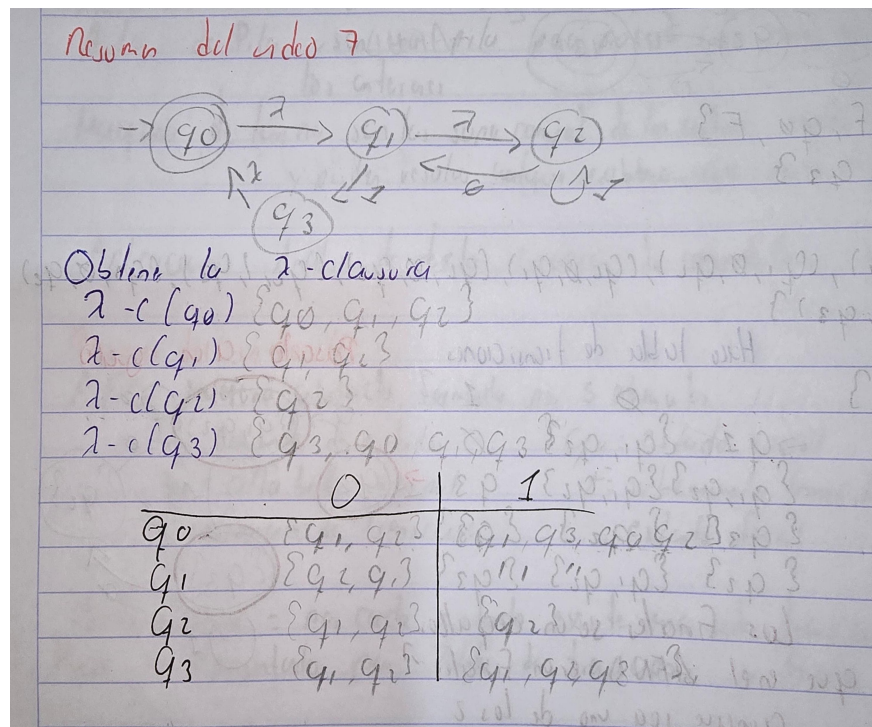 Resumen del video 7
→ q0 λ → q1 λ → q2
← 0
λ 1 1
q3
Obtene la λ-clausura
λ-c(q0) {q0, q1, q2}
λ-c(q1) {q1, q2}
λ-c(q2) {q2}
λ-c(q3) {q3, q0 q1 q3}
0 1
q0 {q1, q2} {q1, q3, q0 q2}
q1 {q2, q1} " "
q2 {q1, q2} {q2}
q3 {q1, q2} {q1, q2, q3}